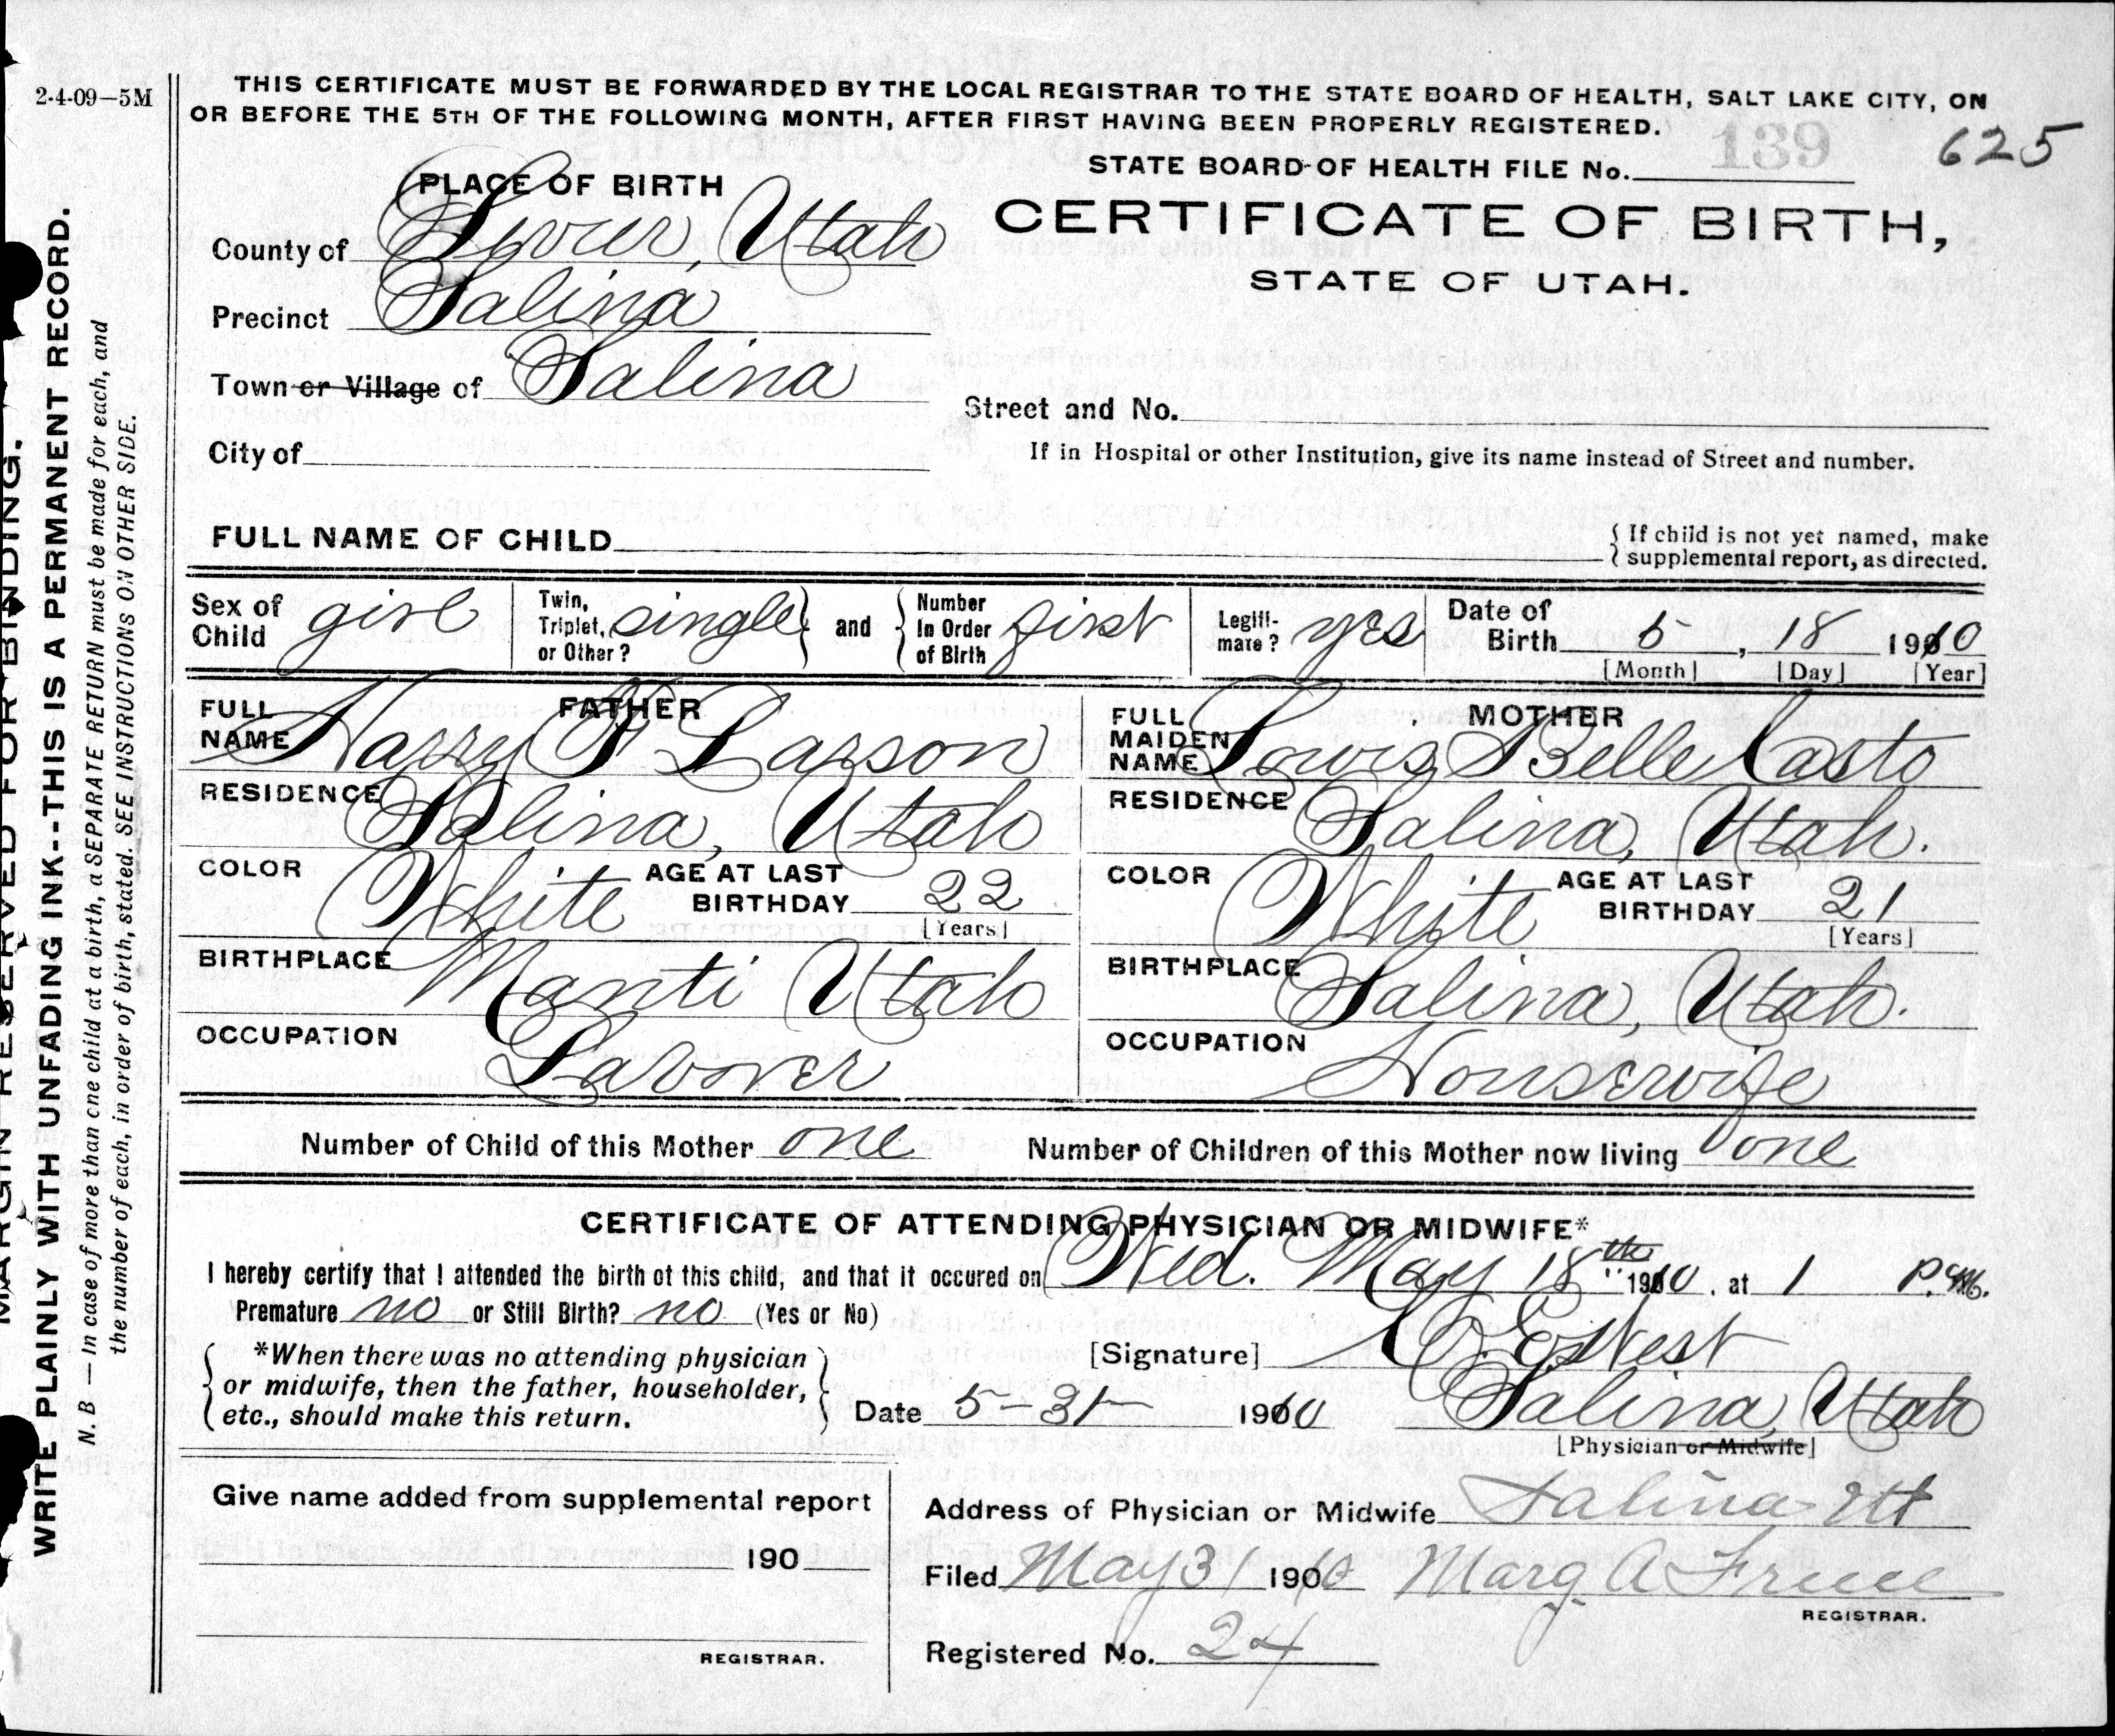 2-4-09—5M
THIS CERTIFICATE MUST BE FORWARDED BY THE LOCAL REGISTRAR TO THE STATE BOARD OF HEALTH, SALT LAKE CITY, ON
OR BEFORE THE 5TH OF THE FOLLOWING MONTH, AFTER FIRST HAVING BEEN PROPERLY REGISTERED.
STATE BOARD OF HEALTH FILE No. 139 625
PLACE OF BIRTH
CERTIFICATE OF BIRTH,
STATE OF UTAH.
County of Sevier, Utah
Precinct Salina
Town or Village of Salina
Street and No.
City of
If in Hospital or other Institution, give its name instead of Street and number.
FULL NAME OF CHILD
If child is not yet named, make
supplemental report, as directed.
Sex of Child girl
Twin, Triplet, or Other? single and Number In Order of Birth first
Legitimate? yes
Date of Birth 5, 18 1910
[Month] [Day] [Year]
FATHER
FULL NAME Harry F Larson
RESIDENCE Salina, Utah
COLOR White AGE AT LAST BIRTHDAY 22
[Years]
BIRTHPLACE Manti Utah
OCCUPATION Laborer
MOTHER
FULL MAIDEN NAME Lowis Belle Casto
RESIDENCE Salina, Utah.
COLOR White AGE AT LAST BIRTHDAY 21
[Years]
BIRTHPLACE Salina, Utah.
OCCUPATION Housewife
Number of Child of this Mother one Number of Children of this Mother now living one
CERTIFICATE OF ATTENDING PHYSICIAN OR MIDWIFE*
I hereby certify that I attended the birth of this child, and that it occured on Wed. May 18th 1910, at 1 P.M.
Premature no or Still Birth? no (Yes or No)
*When there was no attending physician
or midwife, then the father, householder,
etc., should make this return.
[Signature] West
Salina, Utah
Date 5-31- 1910
[Physician or Midwife]
Give name added from supplemental report
190
REGISTRAR.
Address of Physician or Midwife Salina Ut
Filed May 31 1910 Marg A
REGISTRAR.
Registered No. 24
MARGIN RESERVED FOR BINDING.
WRITE PLAINLY WITH UNFADING INK--THIS IS A PERMANENT RECORD.
N. B — In case of more than one child at a birth, a SEPARATE RETURN must be made for each, and
the number of each, in order of birth, stated. SEE INSTRUCTIONS ON OTHER SIDE.